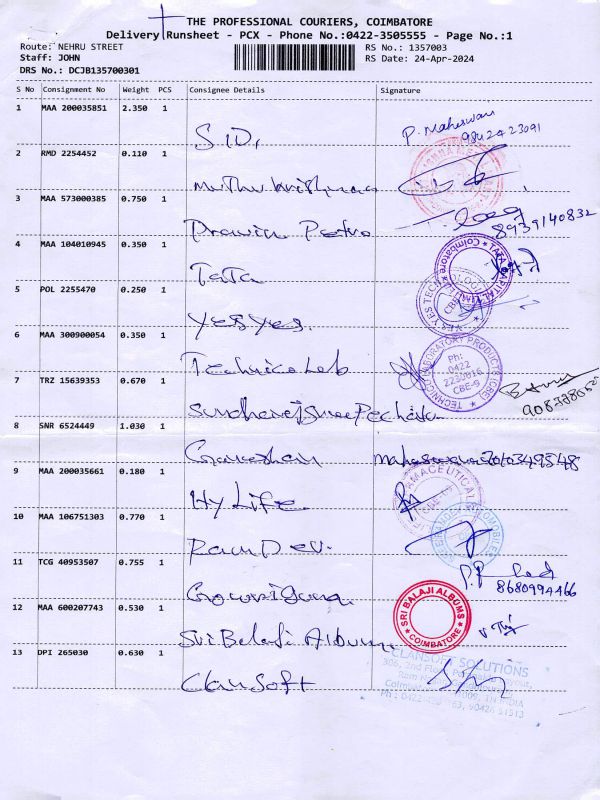 THE PROFESSIONAL COURIERS, COIMBATORE
Delivery Runsheet - PCX - Phone No.:0422-3505555 - Page No.:1
Route: NEHRU STREET RS No.: 1357003
Staff: JOHN RS Date: 24-Apr-2024
DRS No.: DCJB135700301
S No Consignment No Weight PCS Consignee Details Signature
1 MAA 200035851 2.350 1 S.ID, P. Maheswari
9842423091
2 RMD 2254452 0.110 1 Muthukrishnan
3 MAA 573000385 0.750 1 Prawin Pedro 8939140832
4 MAA 104010945 0.350 1 TATA
TATA CAPITAL Limited * Coimbatore *
5 POL 2255470 0.250 1 YesYes.
YES YES TECHNOLOGY CBE
6 MAA 300900054 0.350 1 Technico Lab
TECHNICO LABORATORY PRODUCTS (CBE)
Ph:
0422
CBE-9
7 TRZ 15639353 0.670 1
8 SNR 6524449 1.030 1 Ganeshan 7010349548
9 MAA 200035661 0.180 1 Hy Life
10 MAA 106751303 0.770 1 Ram Dev.
11 TCG 40953507 0.755 1 Gowriguna
8680994466
12 MAA 600207743 0.530 1 Sri Balaji Albums
SRI BALAJI ALBUMS
* COIMBATORE *
13 DPI 265030 0.630 1 ClanSoft
CLANSOFT SOLUTIONS
306, 2nd Floor,